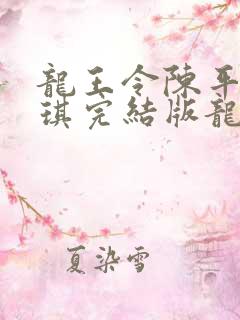 龍王令陳平
琪完結版龍
夏染雪